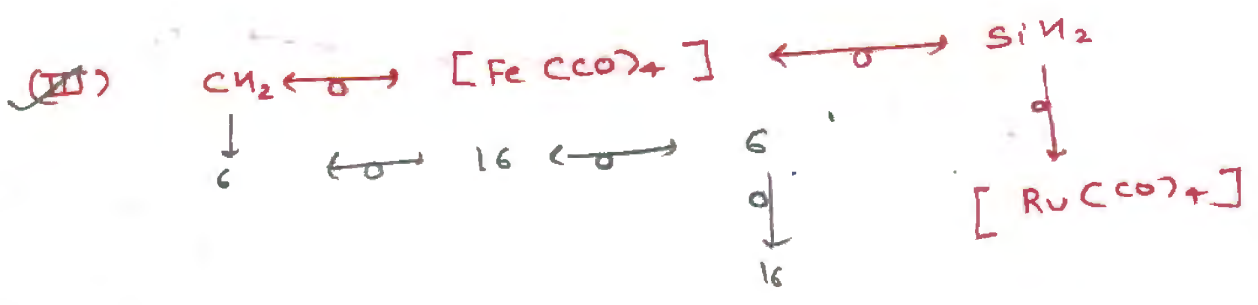 (III) CH₂ ←o→ [Fe(CO)₄] ←o→ SiH₂
6 ←o→ 16 ←o→ 6
[Ru(CO)₄]
16